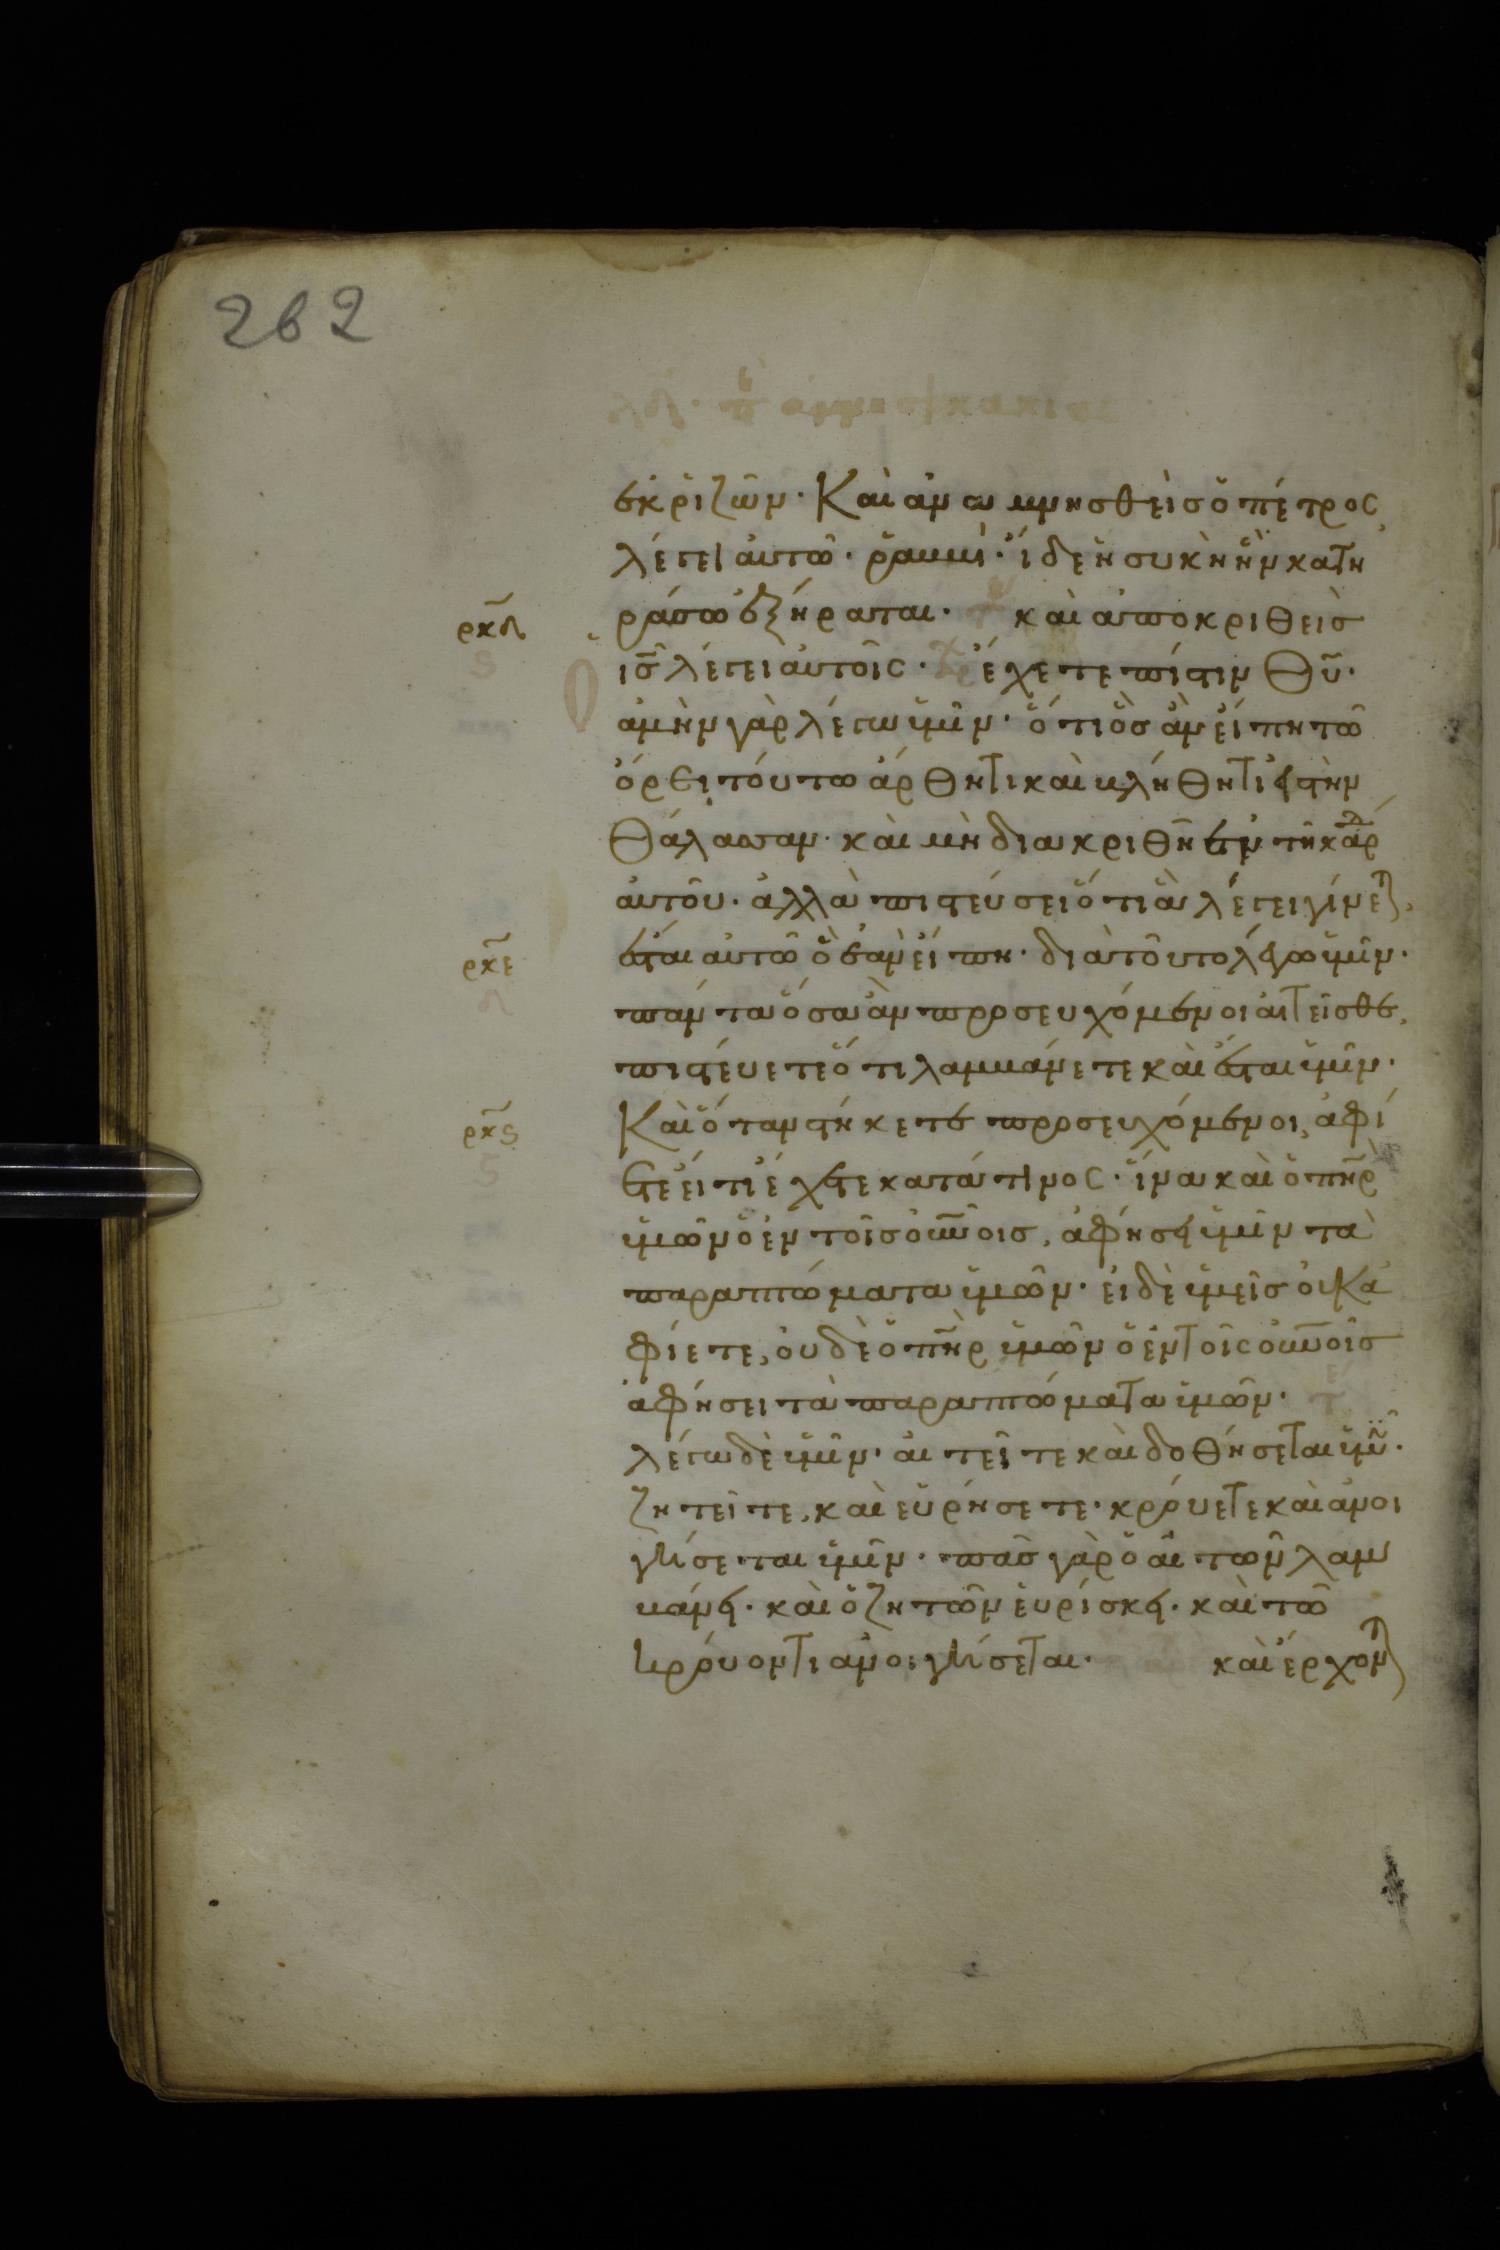 262
ἐκ ῥιζῶν· Καὶ ἀναμνησθεὶς ὁ πέτρος
λέγει αὐτῶ· ῥαββί· ἴδε ἡ συκὴ ἣν κατη
ράσω ἐξήρανται· καὶ ἀποκριθεὶς
ρκδ
ις λέγει αὐτοῖς· ἔχετε πίστιν θυ·
ἀμὴν γὰρ λέγω ὑμῖν· ὅτι ὃς ἂν εἴπη τῶ
ὄρει τούτω ἄρθητι καὶ βλήθητι εἰς τὴν
θάλασσαν· καὶ μὴ διακριθῆ ἐν τῆ καρδ
αὐτοῦ· ἀλλὰ πιστεύσει ὅτι ἃ λέγει γίνετ
ρκε
ἔσται αὐτῶ ὃ ἐὰν εἴπη· διὰ τοῦτο λέγω ὑμῖν·
πάντα ὅσα ἂν προσευχόμενοι αἰτεῖσθε,
πιστεύετε ὅτι λαμβάνετε καὶ ἔσται ὑμῖν·
ρκς
Καὶ ὅταν στήκετε προσευχόμενοι, ἀφί
ετε εἴ τι ἔχετε κατά τινος· ἵνα καὶ ὁ πηρ
ὑμῶν ὁ ἐν τοῖς οὐνοις, ἀφήσει ὑμῖν τὰ
παραπτώματα ὑμῶν· εἰ δὲ ὑμεῖς οὐκ ἀ
φίετε, οὐδὲ ὁ πηρ ὑμῶν ὁ ἐν τοῖς οὐνοις
ἀφήσει τὰ παραπτώματα ὑμῶν·
λέγω δὲ ὑμῖν· αἰτεῖτε καὶ δοθήσεται ὑμῖν·
ζητεῖτε, καὶ εὑρήσετε· κρούετε καὶ ἀνοι
γήσεται ὑμῖν· πᾶς γὰρ ὁ αἰτῶν λαμ
βάνει· καὶ ὁ ζητῶν εὑρίσκει· καὶ τῶ
κρούοντι ἀνοιγήσεται· καὶ ἔρχοντ